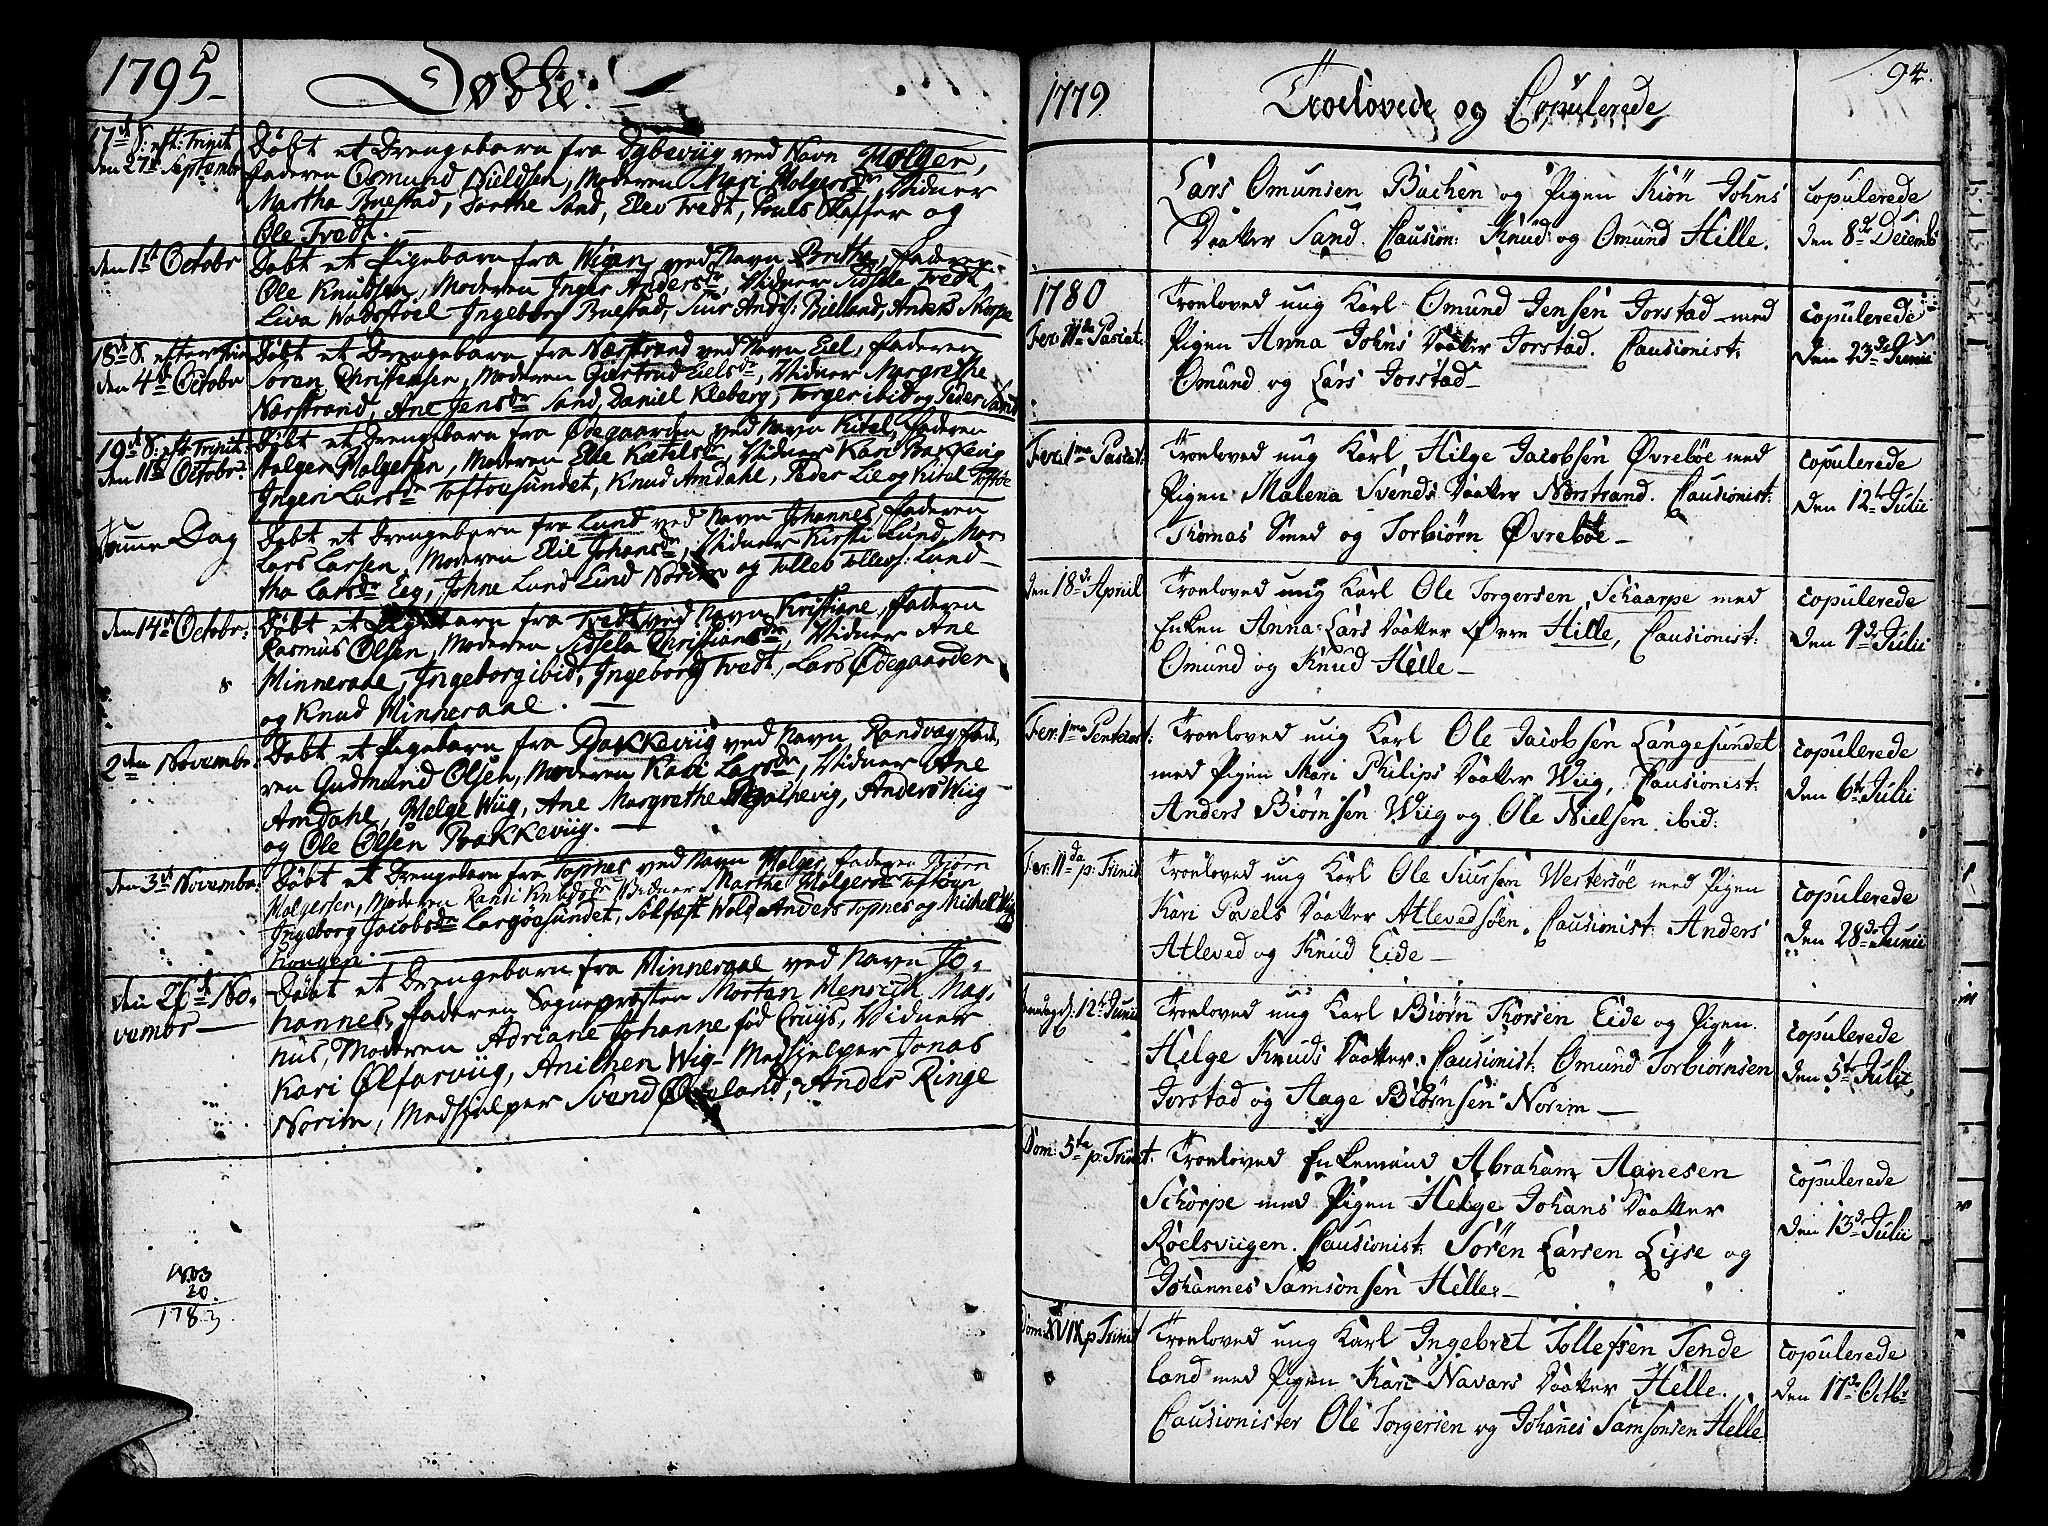 1795
Døbte:
17de S: eft: Trinit
den 27de Septembr
Døbt et Drengebarn fra Dybeviig ved Navn Holger,
Faderen Osmund Nieldsen, Moderen Mari Holgersdr Vidner
Martha Buestad, Dorthe Sand, Elev Tvedt, Pouls Skaffer og
Ole Tvedt.
den 1st Octobr
Døbt et Pigebarn fra Wigen, ved Navn Brithe, Faderen
Ole Knudsen, Moderen Inger Andersdr, Vidner Sidsele Tvedt
Liva Wadsstoel Ingeborg Buestad, Siur Andss: Bielland, Anders Skorpe
18de S. efter Trin
den 4de Octobr
Døbt et Drengebarn fra Nærstrand ved Navn Eel, Faderen
Soren Christensen, Moderen Giertrud Eelsdr, Vidner Margrethe
Nærstrand, Ane Jensdr Sand, Daniel Kleberg, Torger ibid og Peder Sand
19de S: eft: Trinit:
den 11te Octobr
Døbt et Drengebarn fra Ødegaarden ved Navn Kitel, Faderen
Holger Holgersen, Moderen Elie Kætelsdr, Vidner Kari Bakkevig
Ingeri Larsdr Toftøesundet, Knud Amdahl, Peder Lie og Kitel Toftøe
Samme Dag
Døbt et Drengebarn fra Lund ved Navn Johannes, Faderen
Lars Larsen, Moderen Elie Johansdr, Vidner Kirsti Lund, Mar-
tha Larsdr Eeg, Johne Lund Lind Norim og Tolleb Tollevs: Lund
den 14de Octobr:
Døbt et Pigebarn fra Tvedt ved Navn Kristiane, Faderen
Rasmus Olsen, Moderen Sidsela Christiansdr, Vidner Ane
Minneraae, Ingeborg ibid, Ingeborg Tvedt, Lars Ødegaarden
og Knud Minneraae.
2den Novembr:
Døbt et Pigebarn fra Bakkeviig ved Navn Randvag, Fade-
ren Gudmund Olsen, Moderen Kari Larsdr, Vidner Ane
Amdahl, Helge Wiig, Ane Margrethe Malhevig, Anders Wiig
og Ole Olsen Bakkeviig.
den 3de Novembr:
Døbt et Drengebarn fra Topnes ved Navn Holger, Faderen Biørn
Holgersen, Moderen Randi Knudsdr Vidner Marthe Holgersdr Toftøen
Ingeborg Jacobsdr Largøesundet, Solfæst Wold, Anders Topnes og Michell Wiig
Kongen.
den 26de No-
vembr
Døbt et Drengebarn fra Minneraae ved Navn Jo-
hannes, Faderen Sognepræsten Mortan Henrich Mag-
nus, Moderen Adriane Johanne fød Cruys, Vidner
Kari Ølfarviig, Anichen Wig- Medhjelper Jonas
Norim, Medhjelper Svend Øverland, Ander Ringe
1803
20
1783
1779
Troelovede og Copulerede
94.
Lars Omunsen Bachen og Pigen Kiøn Johns
Daatter Sand. Causion: Knud og Omund Hille.
copulerede
den 8de Decemb
1780
Fer: IIda Pascat.
Troeloved ung Karl Omund Jensen Jorstad med
Pigen Anna Johns Daatter Jorstad. Causionist:
Omund og Lars Jorstad
copulerede
den 23de Junii
Fer: 1ma Pascat:
Troeloved ung Karl Helge Jacobsen Øvrebøe med
Pigen Malena Svends Daatter Nerstrand. Causionist:
Thomas Smed og Torbiørn Øvrebøe
copulerede
den 12te Julii
den 18de Apriil
Troeloved ung Karl Ole Torgersen Schaarpe med
Enken Anna Lars Daatter Øvre Hille, Causionist:
Omund og Knud Helle
copulerede
den 9de Julii
Fer: 1ma Pentecost:
Troeloved ung Karl Ole Jacobsen Langesundet
med Pigen Mari Philips Daatter Wiig, Causionist:
Anders Biørnsen Wiig og Ole Nielsen ibid:
copulerede
den 6te Julii
Fer: IIda p: Trinit
Troeloved ung Karl Ole Siursen Westersøe med Pigen
Kari Povels Daatter Atlevedsøen, Causionist: Anders
Atleved og Knud Eide
copulerede
den 28de Junii
Mandag d: 12te Junii
Troeloved ung Karl Biørn Thorsen Eide og Pigen
Helge Knuds Daatter. Causionist: Omund Torbiørnsen
Jorstad og Aage Biørnsen Norim
copulerede
den 5te Julii
Dom: 5ta p. Trinit.
Troeloved Enkemand Abraham Aanesen
Schorpe med Pigen Helge Johans Daatter
Roelsviigen. Causionist: Søren Larsen Lyse og
Johannes Samsonsen Helle
copulerede
den 13de Julii
Dom: XVIX p Trinit
Troeloved ung Karl Ingebret Tollefsen Tende
land med Pigen Kari Navars Daatter Helle.
Causionister Ole Torgersen og Johanes Samsonsen Helle
copulerede
den 17de Octb: